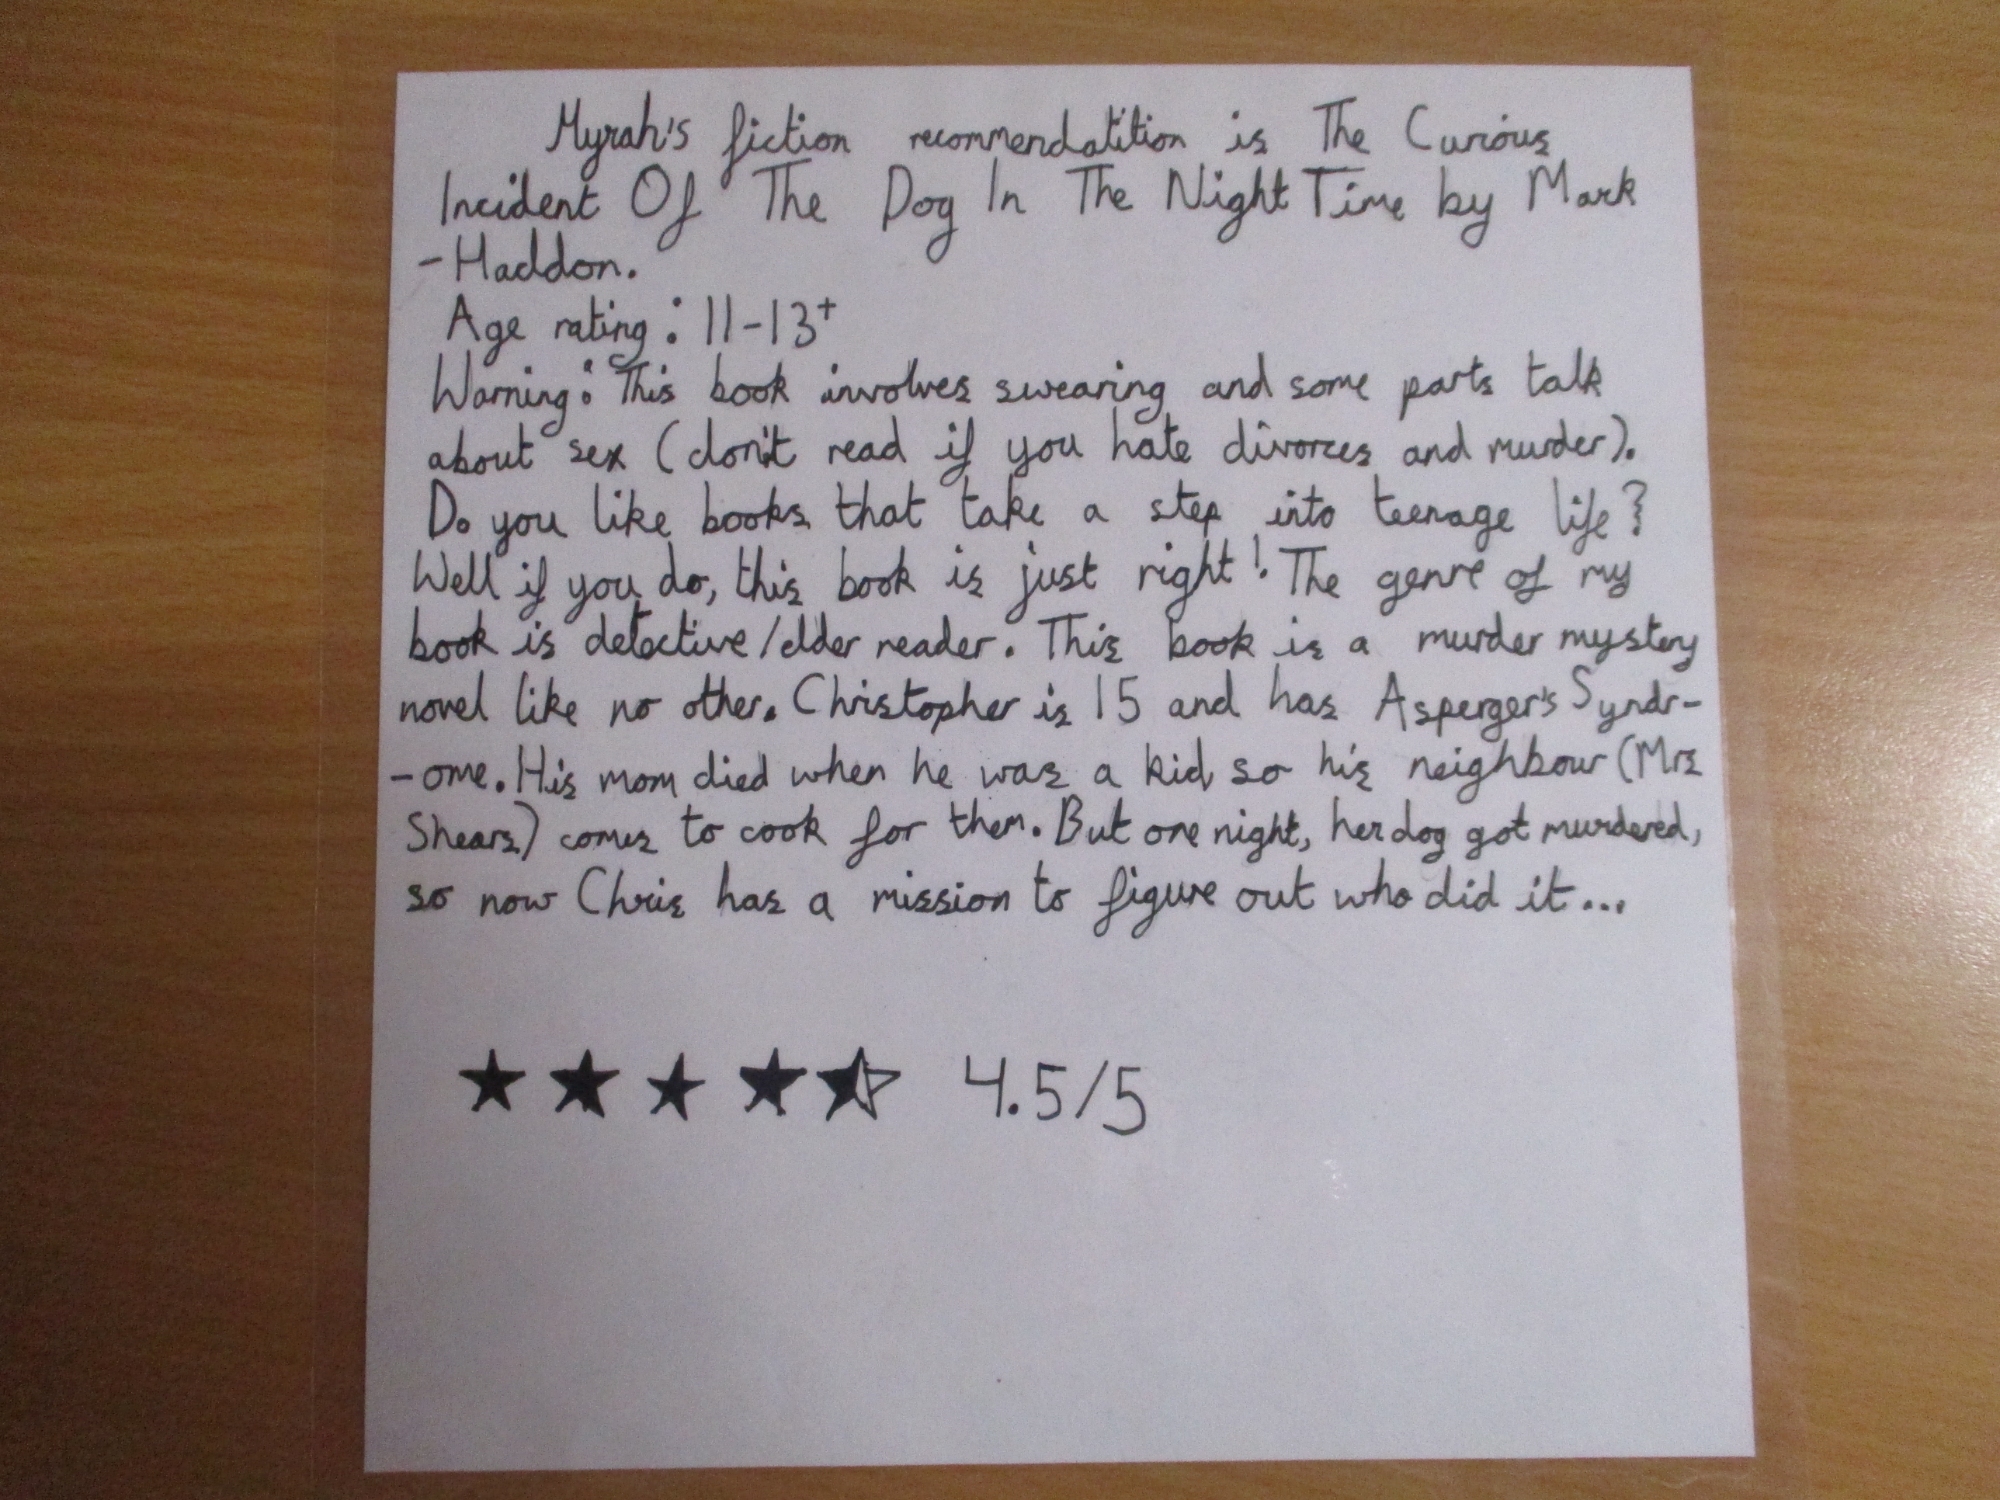 Myrah's fiction recommendatition is The Curious
Incident Of The Dog In The Night Time by Mark
-Haddon.
Age rating: 11-13+
Warning: This book involves swearing and some parts talk
about sex (don't read if you hate divorces and murder).
Do you like books that take a step into teenage life?
Well if you do, this book is just right! The genre of my
book is detective/elder reader. This book is a murder mystery
novel like no other. Christopher is 15 and has Asperger's Syndr-
-ome. His mom died when he was a kid so his neighbour (Mrs
Shears) comes to cook for them. But one night, her dog got murdered,
so now Chris has a mission to figure out who did it...
4.5/5